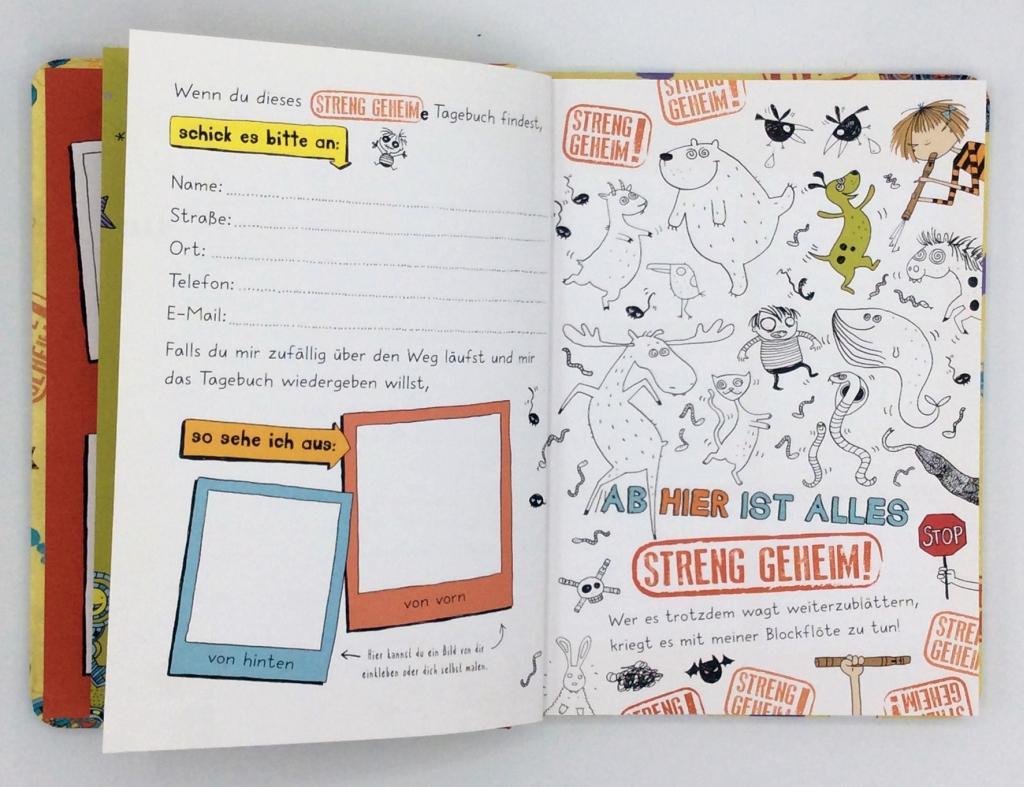 Wenn du dieses STRENG GEHEIMe Tagebuch findest,
schick es bitte an:
Name:
Straße:
Ort:
Telefon:
E-Mail:
Falls du mir zufällig über den Weg läufst und mir
das Tagebuch wiedergeben willst,
so sehe ich aus:
von vorn
von hinten
Hier kannst du ein Bild von dir
einkleben oder dich selbst malen.
STRENG
GEHEIM!
STRENG
GEHEIM!
AB HIER IST ALLES
STOP
STRENG GEHEIM!
Wer es trotzdem wagt weiterzublättern,
kriegt es mit meiner Blockflöte zu tun!
STRENG
GEHEIM!
STRENG
GEHEIM!